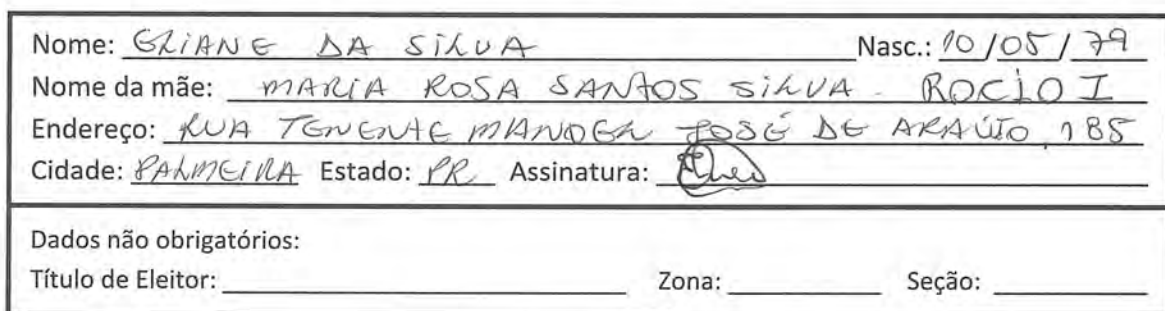 Nome: ELIANE DA SILVA Nasc.: 10/05/79
Nome da mãe: MARIA ROSA SANTOS SILVA - ROCIO I
Endereço: RUA TENENTE MANOEL JOSÉ DE ARAÚJO, 185
Cidade: PALMEIRA Estado: PR Assinatura:
Dados não obrigatórios:
Título de Eleitor: Zona: Seção: